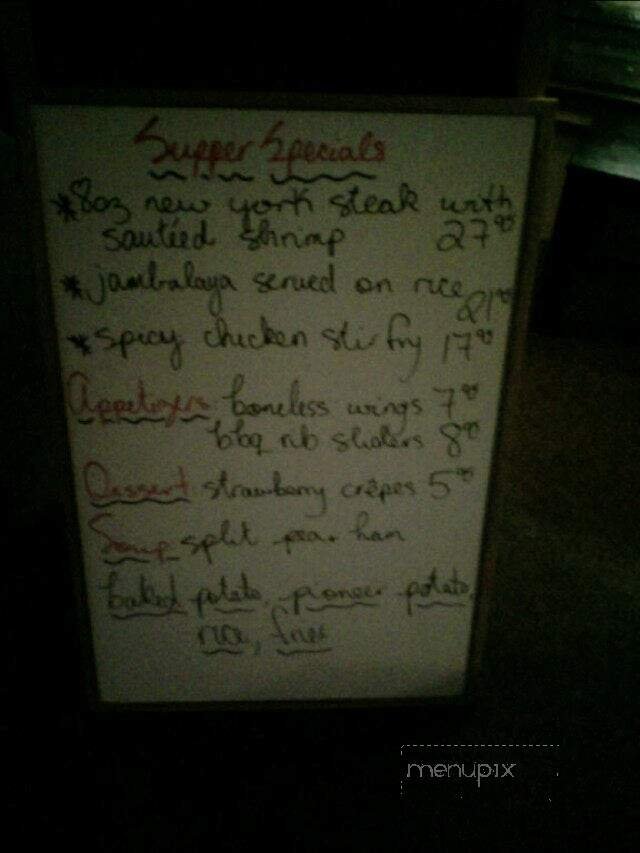 Supper Specials
*8oz new york steak with
sautéed shrimp 27⁰⁰
*jambalaya served on rice
21⁰⁰
*spicy chicken stir fry 17⁰⁰
Appetizers boneless wings 7⁰⁰
bbq rib sliders 8⁰⁰
Dessert strawberry crêpes 5⁰⁰
Soup split pea ham
baked potato, pioneer potato,
rice, fries
menupix